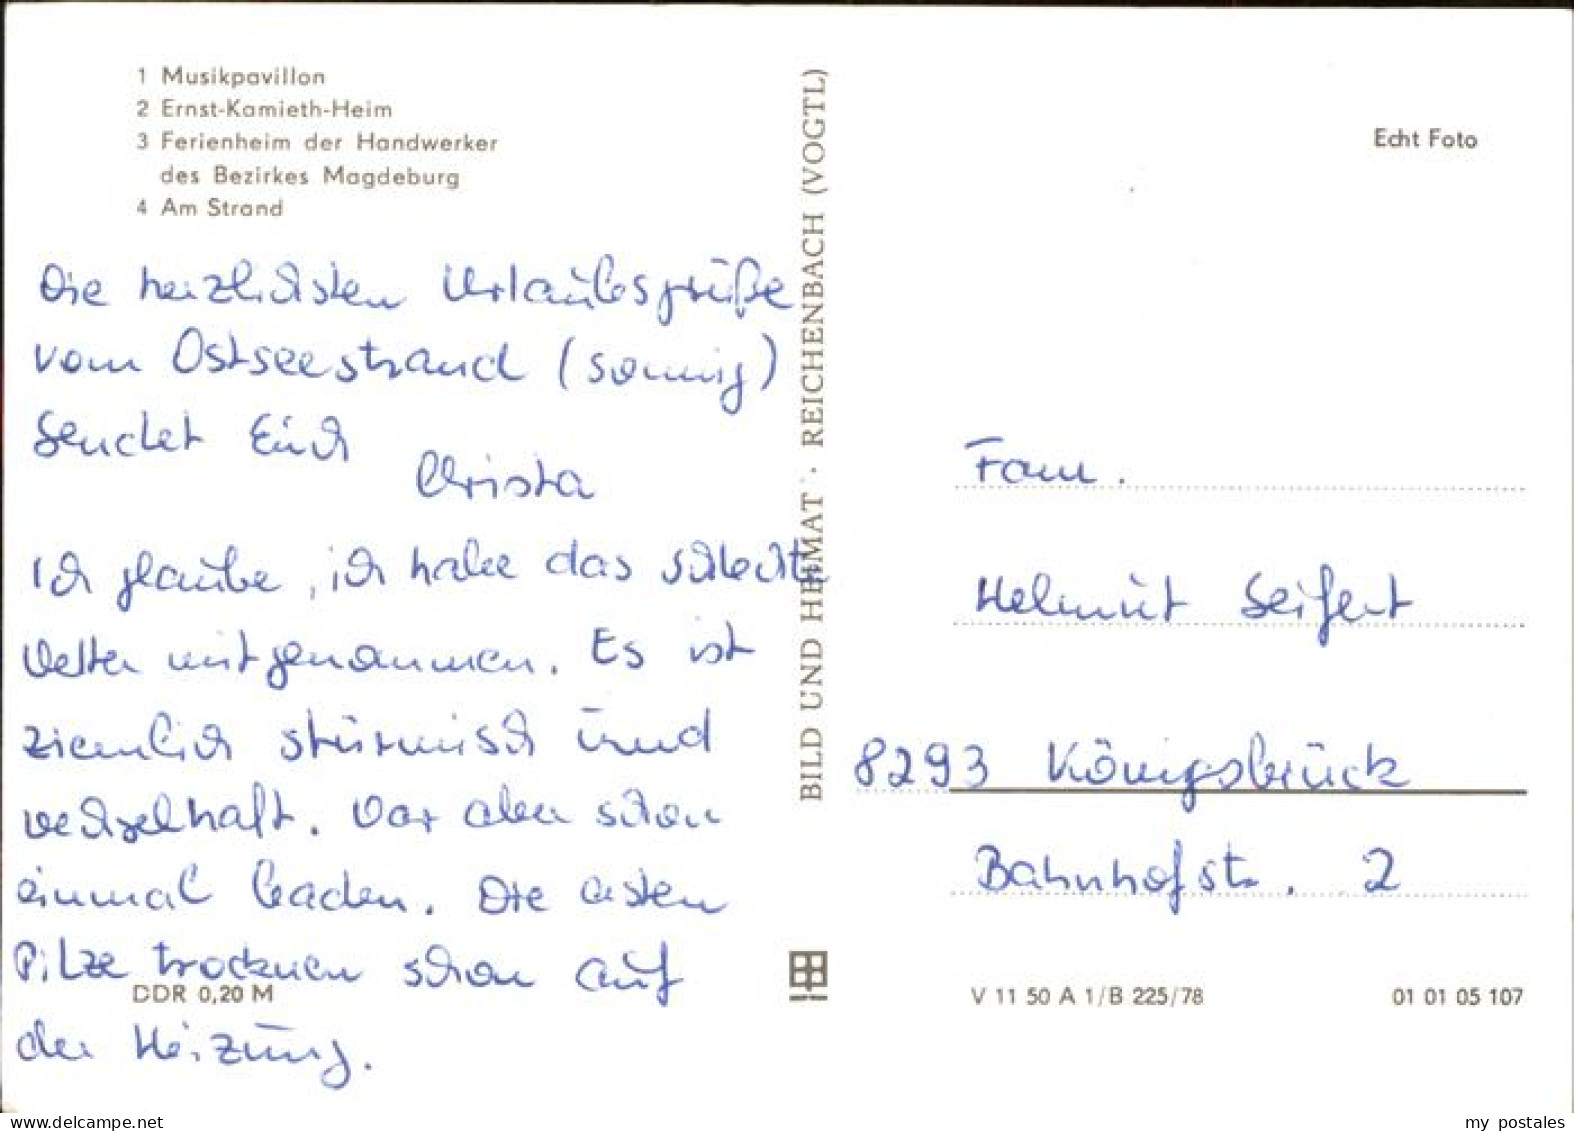 1 Musikpavillon
2 Ernst-Kamieth-Heim
3 Ferienheim der Handwerker
des Bezirkes Magdeburg
4 Am Strand
Die herzlichsten Urlaubsgrüße
vom Ostseestrand (sonnig)
Sendet Euch
Christa
Ich glaube, ich habe das schlechte
Wetter mitgenommen. Es ist
ziemlich stürmisch und
wechselhaft. War aber schon
einmal baden. Die ersten
Pilze trocknen schon auf
der Heizung.
DDR 0,20 M
BILD UND HEIMAT · REICHENBACH (VOGTL)
Echt Foto
Fam.
Helmut Seifert
8293 Königsbrück
Bahnhofstr. 2
V 11 50 A 1/B 225/78
01 01 05 107
my postales
www.delcampe.net